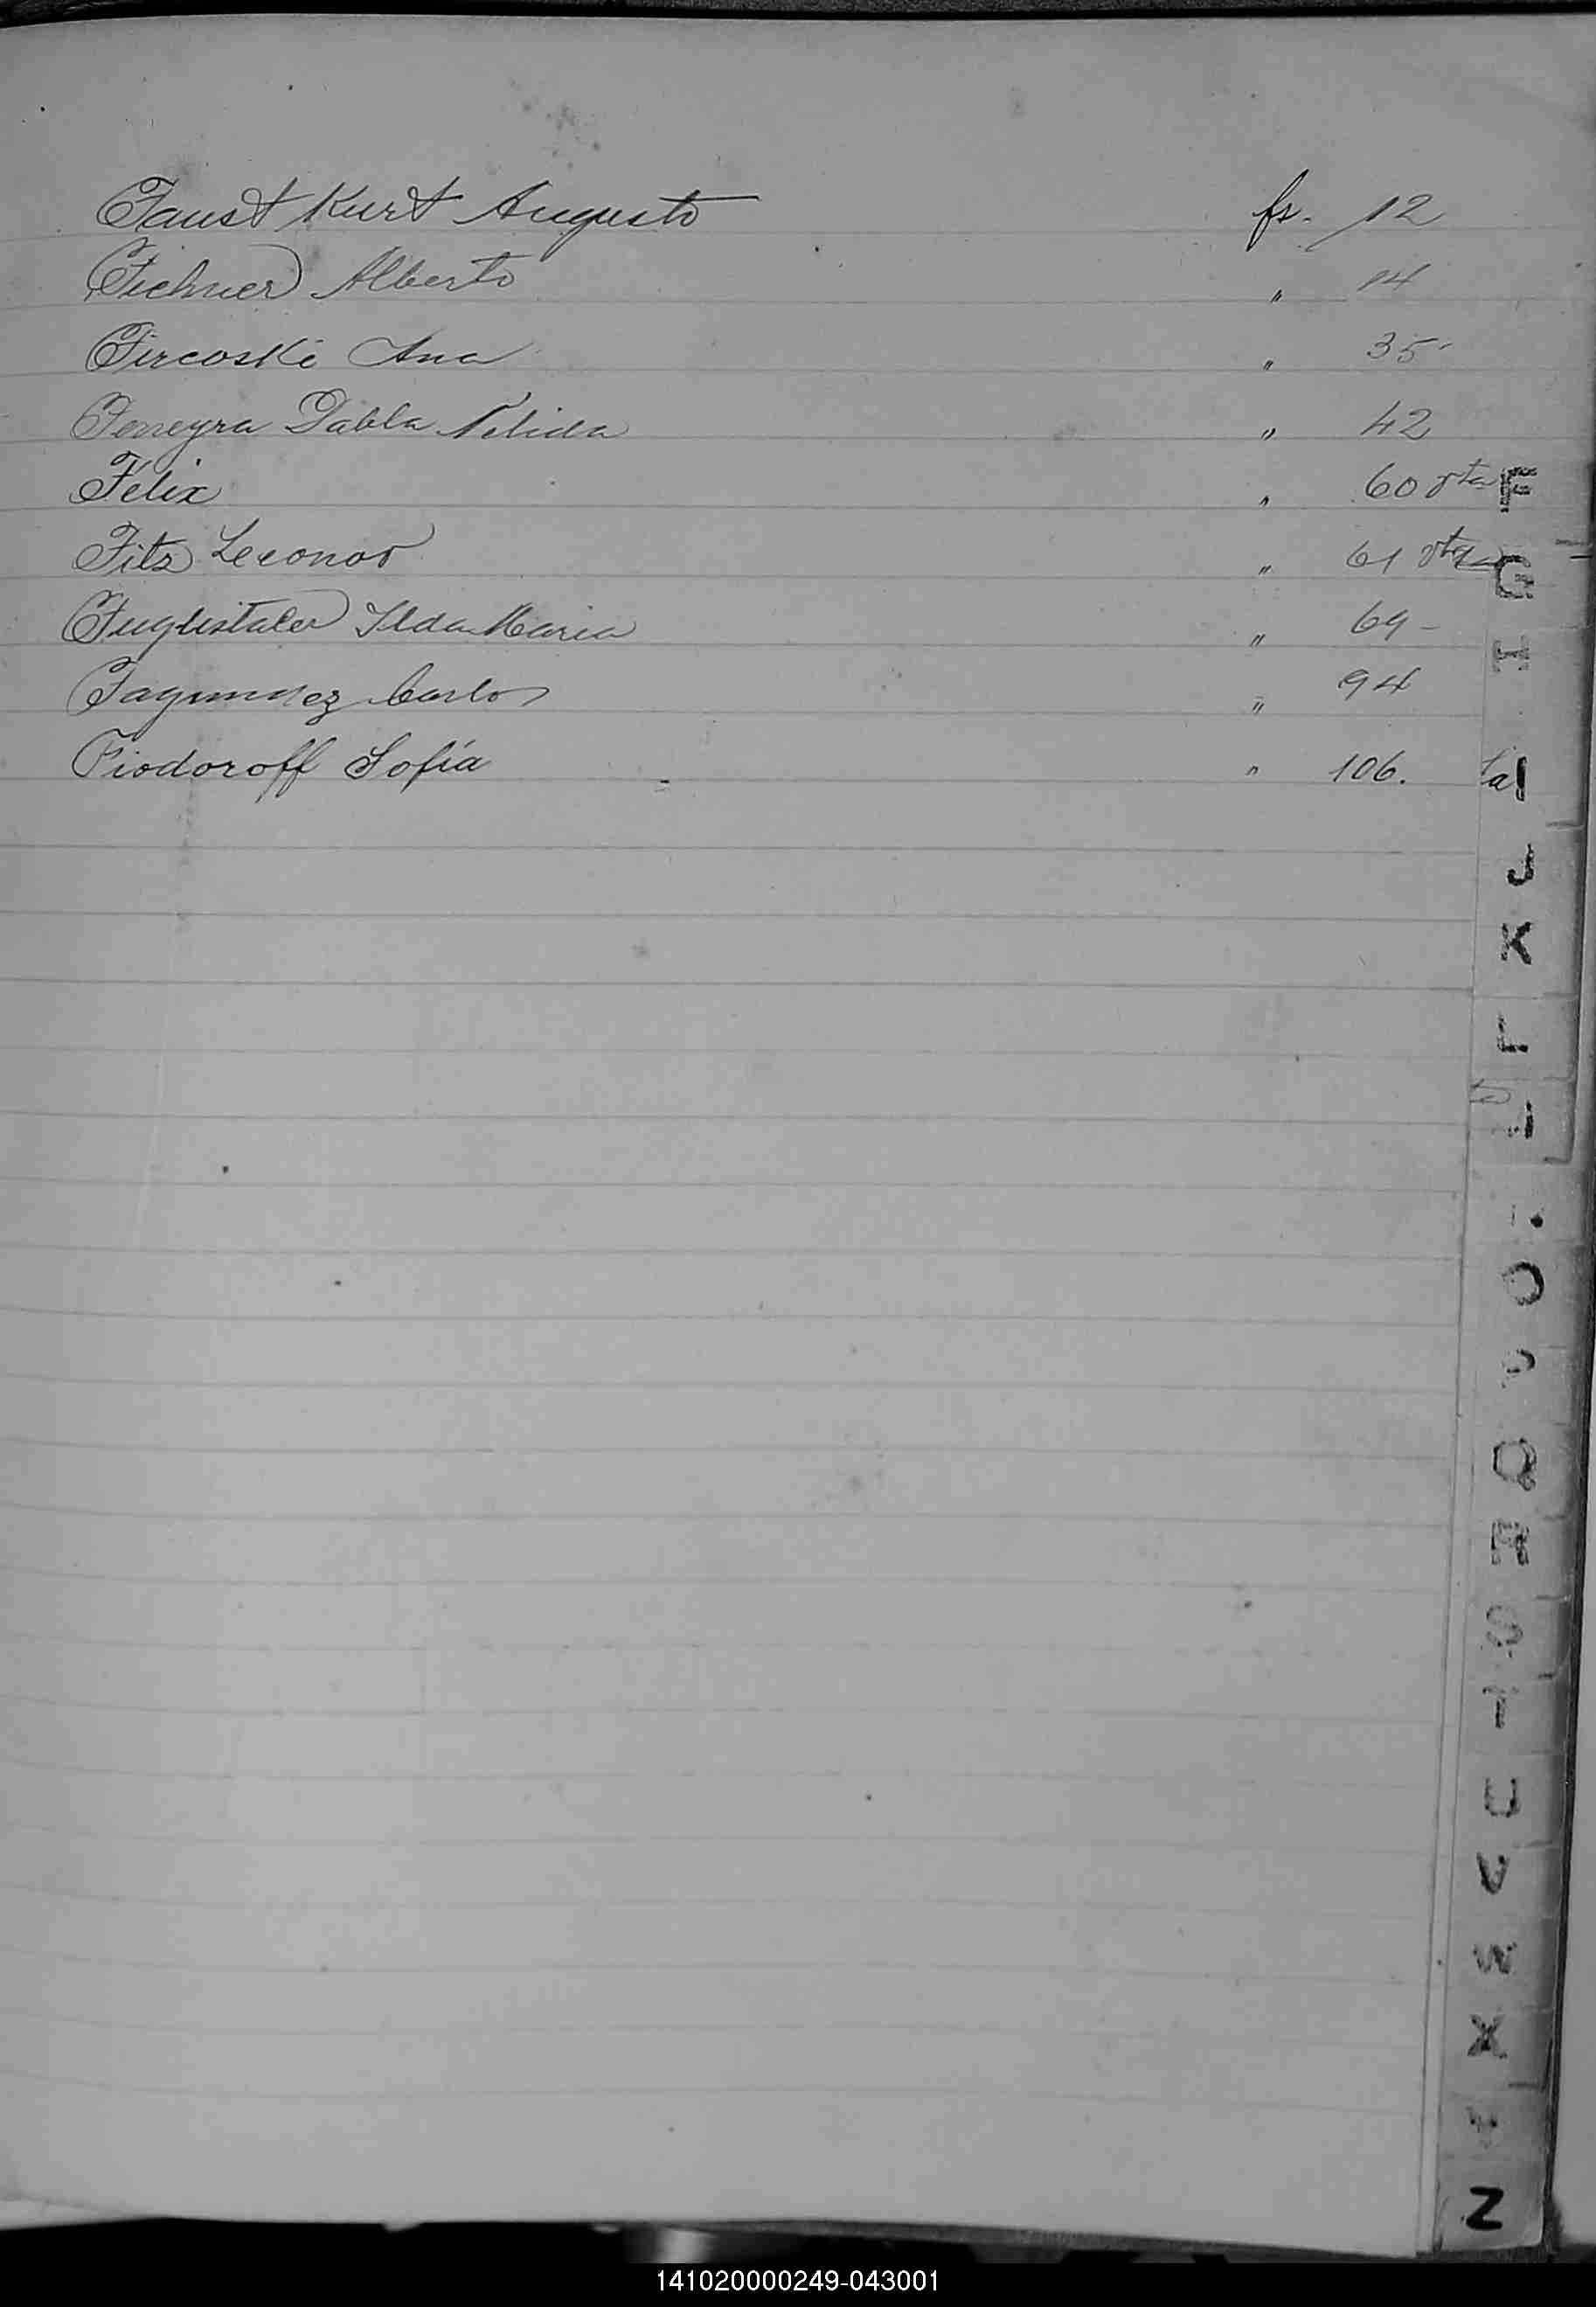 Faust Kurt Augusto fs. 12
Fichner Alberto " 14
Fircoski Ana " 35
Ferreyra Pabla Nelida " 42
Félix " 60 vta
Fitz Leonor " 61 vta
Fuglistaler Ilda Maria " 69
Fagundez Carlos " 94
Fiodoroff Sofía " 106.
F
G
H
I
J
K
L
O
P
Q
R
S
T
U
V
W
X
Z
141020000249-043001